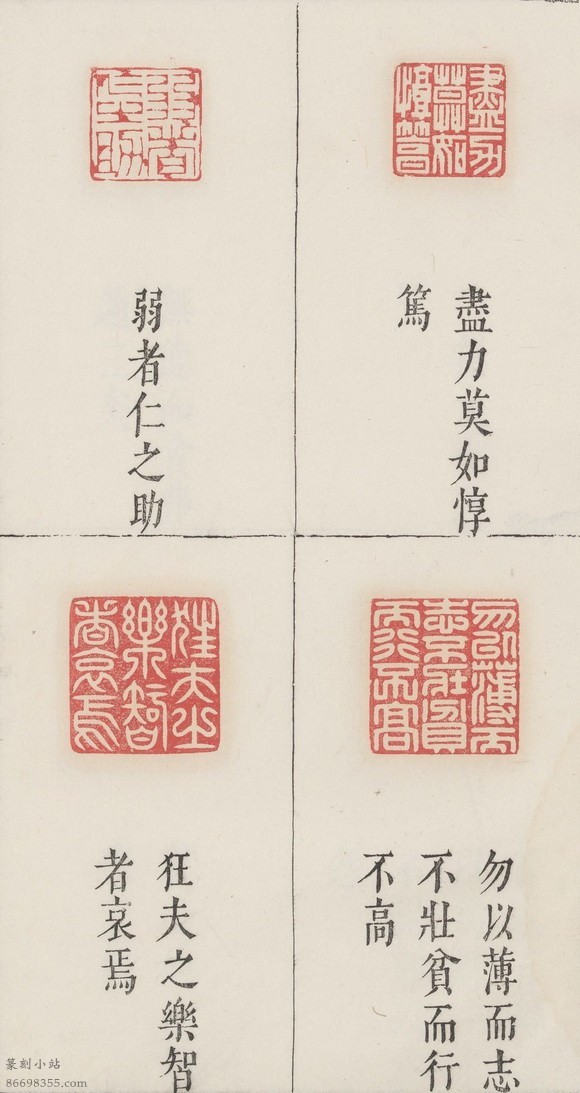 盡力莫如惇
篤
弱者仁之助
勿以薄而志
不壯貧而行
不高
狂夫之樂智
者哀焉
篆刻小站
86698355.com